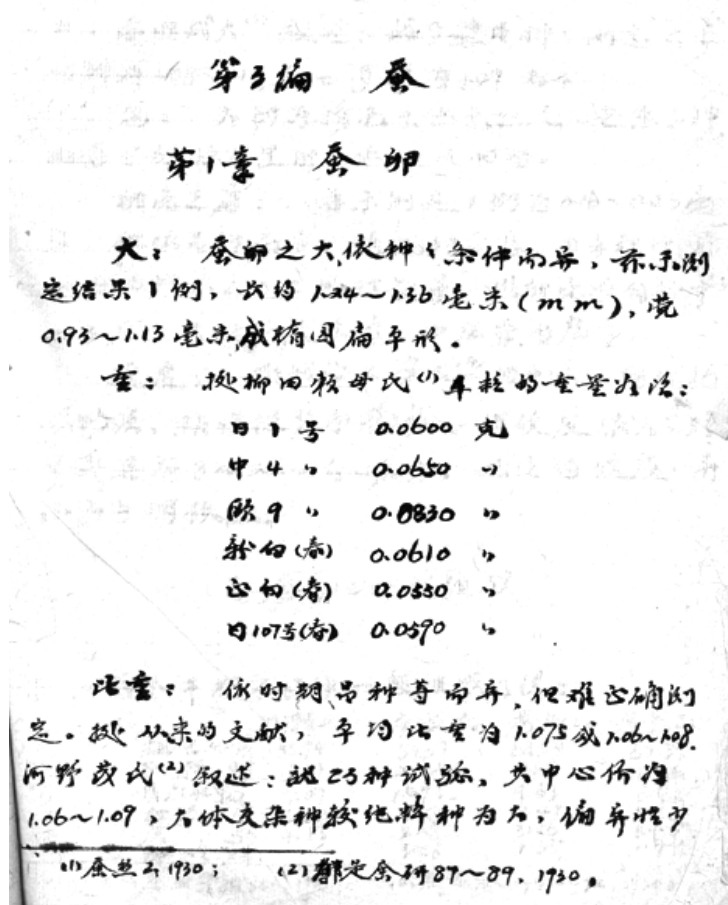 第3编 蚕
第1章 蚕卵
大： 蚕卵之大，依种々条件而异，示测
定结果1例，长约1.24～1.36毫米(mm)，宽
0.93～1.13毫米，成椭圆扁平形。
重： 据柳田 母氏(1)单粒的重量如次：
日1号 0.0600 克
中4〃 0.0650 〃
欧9〃 0.0830 〃
新白(春) 0.0610 〃
正白(春) 0.0550 〃
日107号(春) 0.0590 〃
比重： 依时期、品种等而异，但难正确测
定。据从来的文献，平均比重为1.075或1.06～1.08。
河野茂氏(2)叙述：就23种试验，其中心价为
1.06～1.09，大体交杂种较纯粹种为大，偏异性少
(1)蚕丝2，1930； (2) 蚕研87～89，1930。